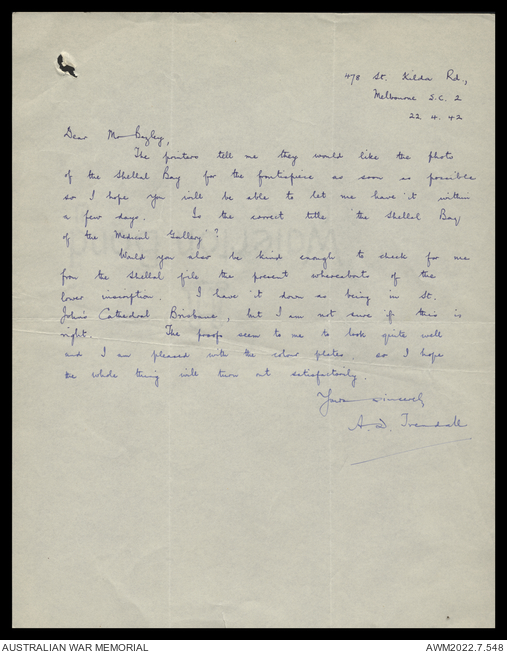 478 St. Kilda Rd.,
Melbourne S.C. 2
22. 4. 42
Dear Mr Bazley,
The printers tell me they would like the photo
of the Shellal Bay for the frontispiece as soon as possible
so I hope you will be able to let me have it within
a few days. Is the correct title "the Shellal Bay
of the Medical Gallery"?
Would you also be kind enough to check for me
from the Shellal file the present whereabouts of the
lower inscription. I have it down as being in St.
John's Cathedral Brisbane, but I am not sure if this is
right. The proofs seem to me to look quite well
and I am pleased with the colour plates. so I hope
the whole thing will turn out satisfactorily.
Yours sincerely
A. D. Trendall
AUSTRALIAN WAR MEMORIAL
AWM2022.7.548